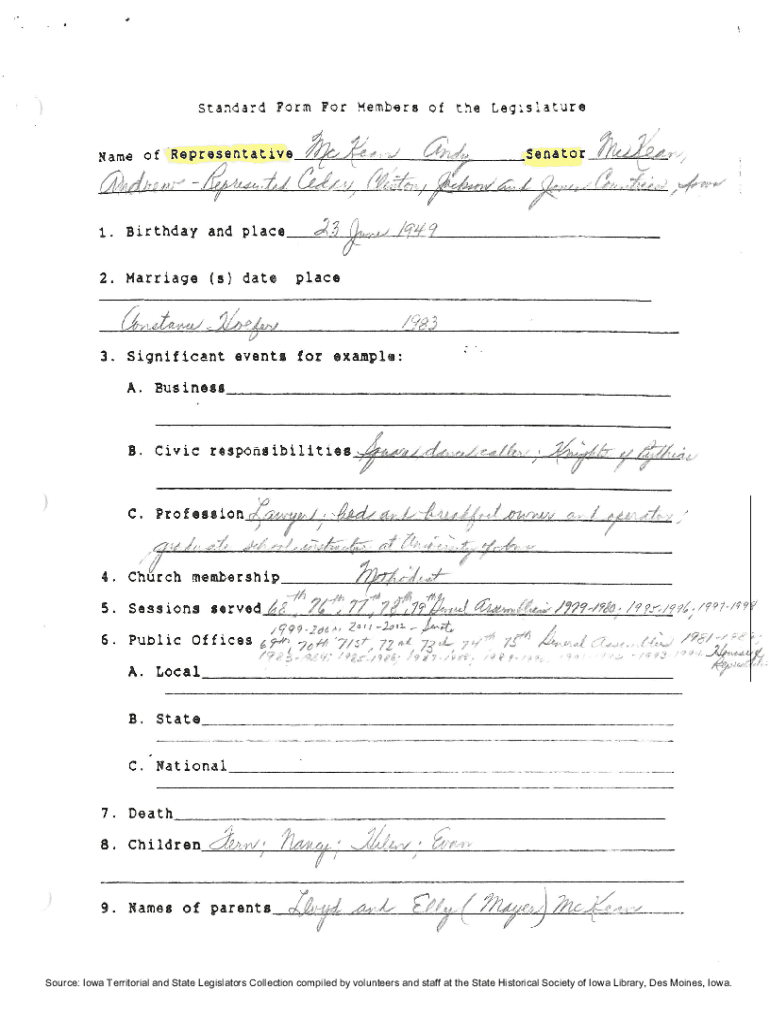 Standard Form For Members of the Legislature
Name of Representative McKean Andy Senator McKean,
Andrew - Represented Cedar, Clinton, Jackson and Jones Counties, Iowa
1. Birthday and place 23 June 1949
2. Marriage (s) date place
Constance Hoefer 1983
3. Significant events for example:
A. Business
B. Civic responsibilities Square dance caller; Knights of Pythias
C. Profession Lawyer; bed and breakfast owner and operator;
graduate school instructor at University of Iowa
4. Church membership Methodist
5. Sessions served 68th, 76th, 77th, 78th, 79th General Assemblies 1979-1980; 1995-1996; 1997-1998
1999-2000, 2011-2012 - Senate
6. Public Offices 69th, 70th, 71st, 72nd, 73rd, 74th, 75th General Assemblies 1981-1982;
1983-1984; 1985-1986; 1987-1988; 1989-1990, 1991-1992, 1993-1994 House of
Representatives
A. Local
B. State
C. National
7. Death
8. Children Fern; Nancy; Helen; Evan
9. Names of parents Lloyd and Elly (Mayer) McKean
Source: Iowa Territorial and State Legislators Collection compiled by volunteers and staff at the State Historical Society of Iowa Library, Des Moines, Iowa.